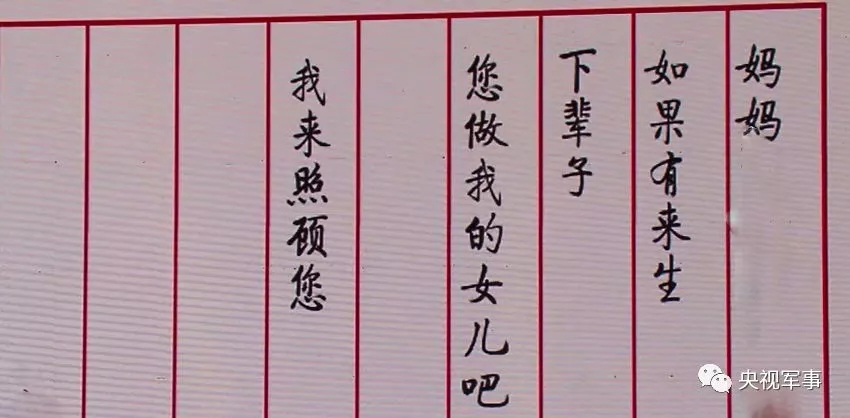 妈妈
如果有来生
下辈子
您做我的女儿吧
我来照顾您
央视军事